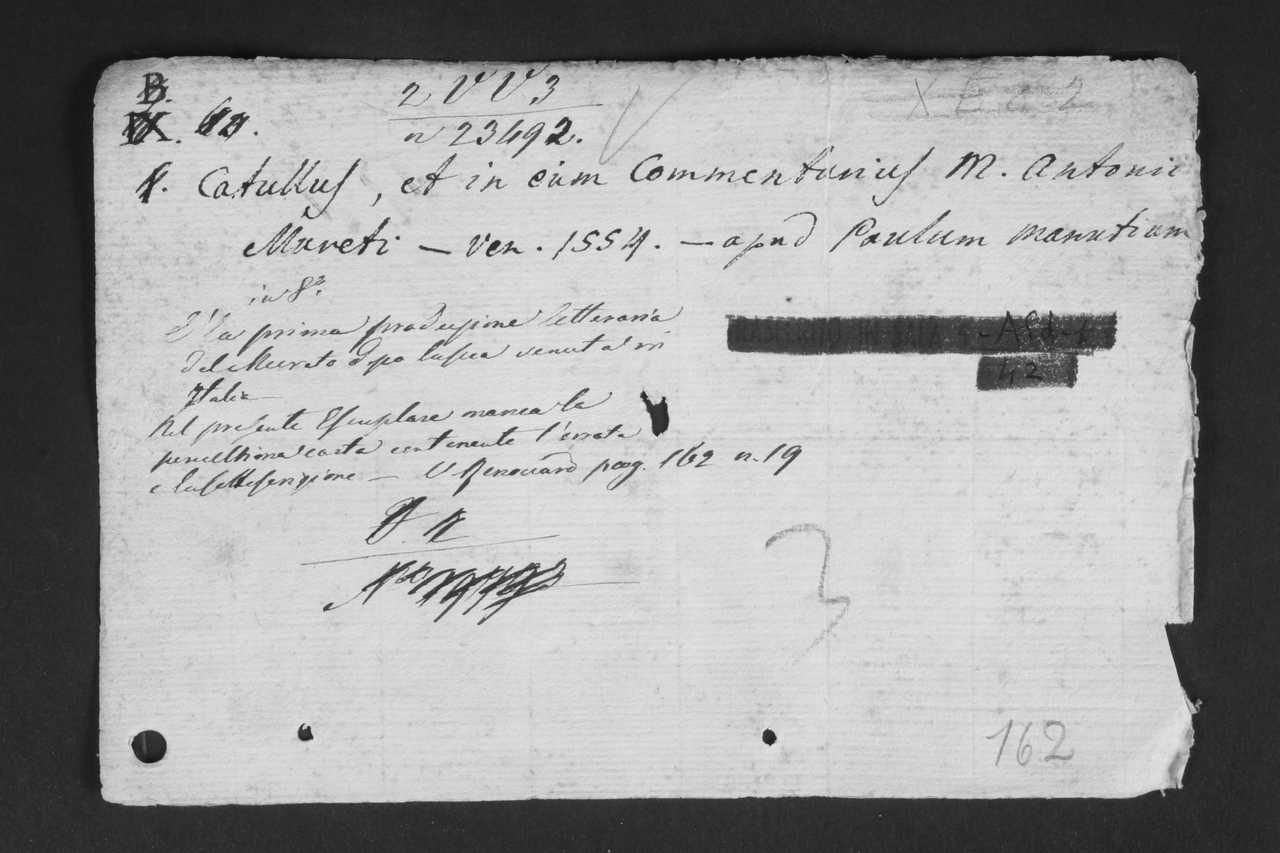 B.
2 V V 3
X E c 2
IX.
n 23492.
Catullus, et in eum Commentarius M. Antonii
Mureti – Ven. 1554. – apud Paulum Manutium
in 8º
È la prima produzione letteraria
del Mureto dopo la sua venuta in
Italia
TRASFERITO IN SALA 4 - Ald. 1
42
Nel presente Esemplare manca la
penultima carta contenente l'errata
e la sottoscrizione – V. Renouard pag. 162 n. 19
3
162